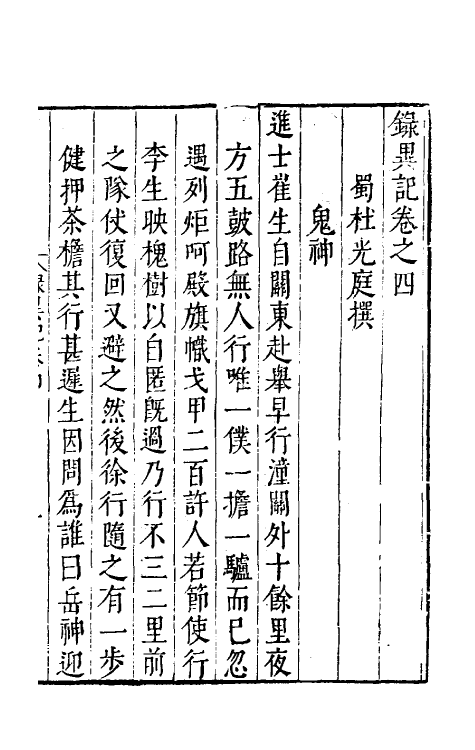 錄異記卷之四
蜀杜光庭撰
鬼神
進士崔生自關東赴舉早行潼關外十餘里夜
方五鼓路無人行唯一僕一擔一驢而已忽
遇列炬呵殿旗幟戈甲二百許人若節使行
李生映槐樹以自匿旣過乃行不三二里前
之隊伏復回又避之然後徐行隨之有一步
健押茶檐其行甚遲生因問爲誰曰岳神迎